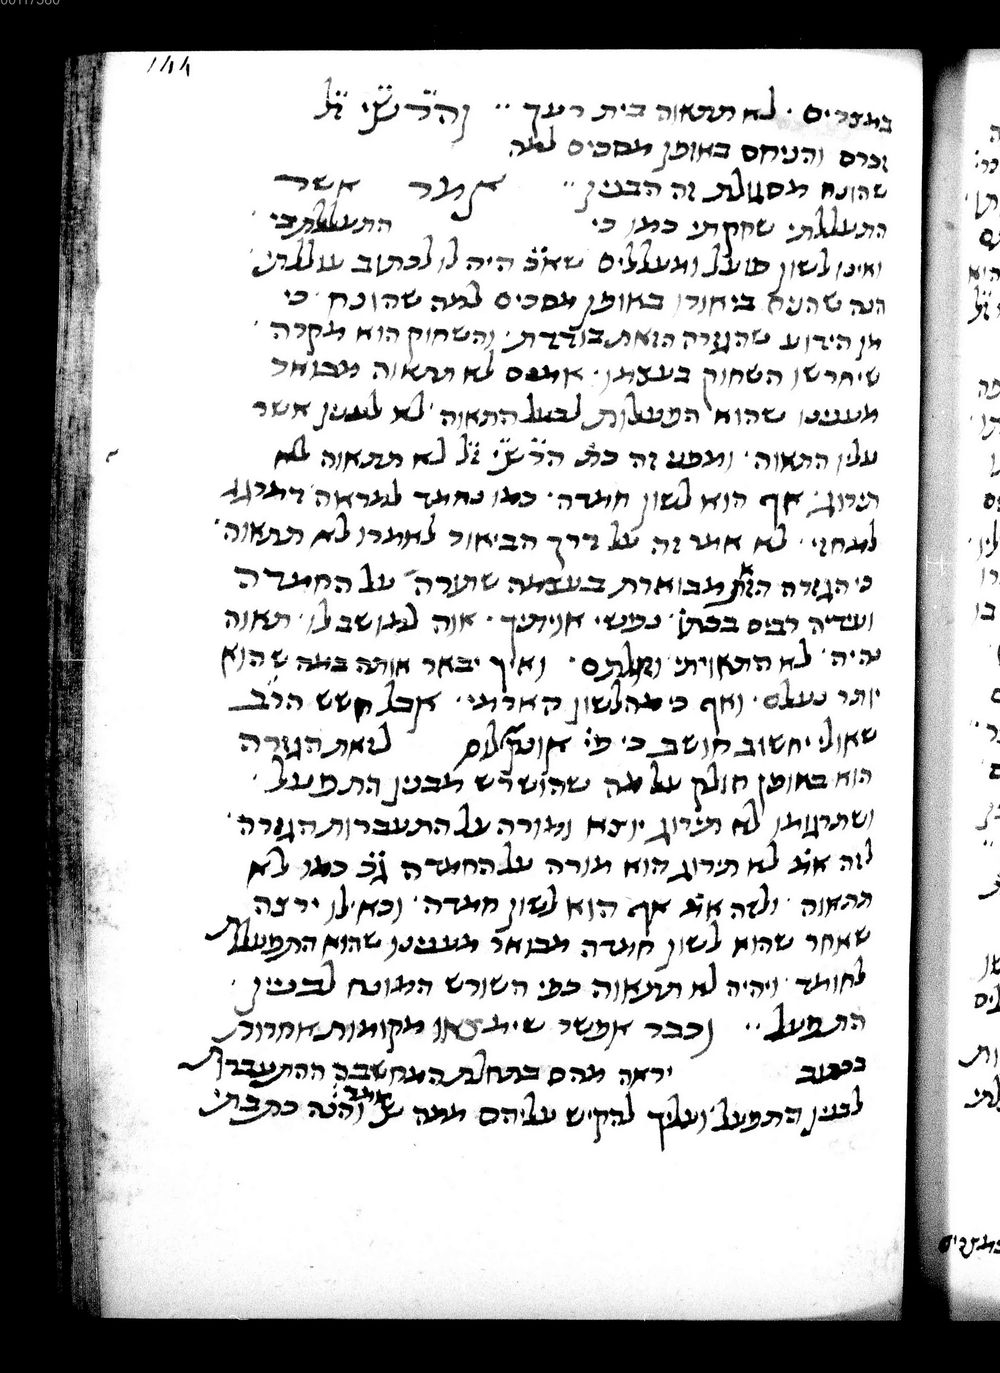 144
במצרים · לא תתאוה בית רעך ·· והר״ש״י ז״ל
זכרם והניחם באופן מסכים למה
שהונח מסגולת זה הבנין ·· אמר אשר
התעללתי שחקתי כמו כי התעללת בי ·
ואינו לשון פועל ומעללים שא״כ היה לו לכתוב עוללתי ·
הנה שהניח ביאורו באופן מסכים למה שהונח · כי
מן הידוע שהגזרה הזאת בודדת · והשחוק הוא מקרה ·
שיחדשו השחוק בעצמו · אמנם לא תתאוה מבואר
מענינו שהוא הפעלות לבעל התאוה · לא לענין אשר
עליו התאוה · ומפני זה כת׳ הר״ש״י ז״ל לא תתאוה לא
תירוג · אף הוא לשון חמדה · כמו נחמד למראה דמרגג
למחזי · לא אמר זה על דרך הביאור לאמרו לא תתאוה ·
כי הגזרה הזאת מבוארת בעצמה שתורה על החמדה
ועדיה רבים בכתו׳ · נפשי אויתיך · אוה למושב לו · תאוה
נהיה · לא התאויתי וזולתם · ואיך יבאר אותה במה שהוא
יותר נעלם · ואף כי מהלשון הארמי · אבל חשש הרב
שאולי יחשוב חושב כי פי׳ אונקלוס לזאת הגזרה
הוא באופן חולק על מה שהושרש מבנין התפעל ·
ושתרגומו לא תירוג יוצא ומורה על התעברות הגזרה ·
לזה אמ׳ לא תירוג הוא מורה על החמדה ג״כ כמו לא
תתאוה · ולזה אמ׳ אף הוא לשון חמדה · וכאילו ירצה
שאחר שהוא לשון חמדה מבואר מענינו שהוא התפעלות
לחומד · ויהיה לא תתאוה כפי השורש המונח לבנין ·
התפעל ·· וכבר אפשר שימצאו מקומות אחרות
בכתוב יראה מהם בתחלת המחשבה ההתעברות
לבנין התפעל ועליך להקיש עליהם ממה ש אמר והנה כתבתי